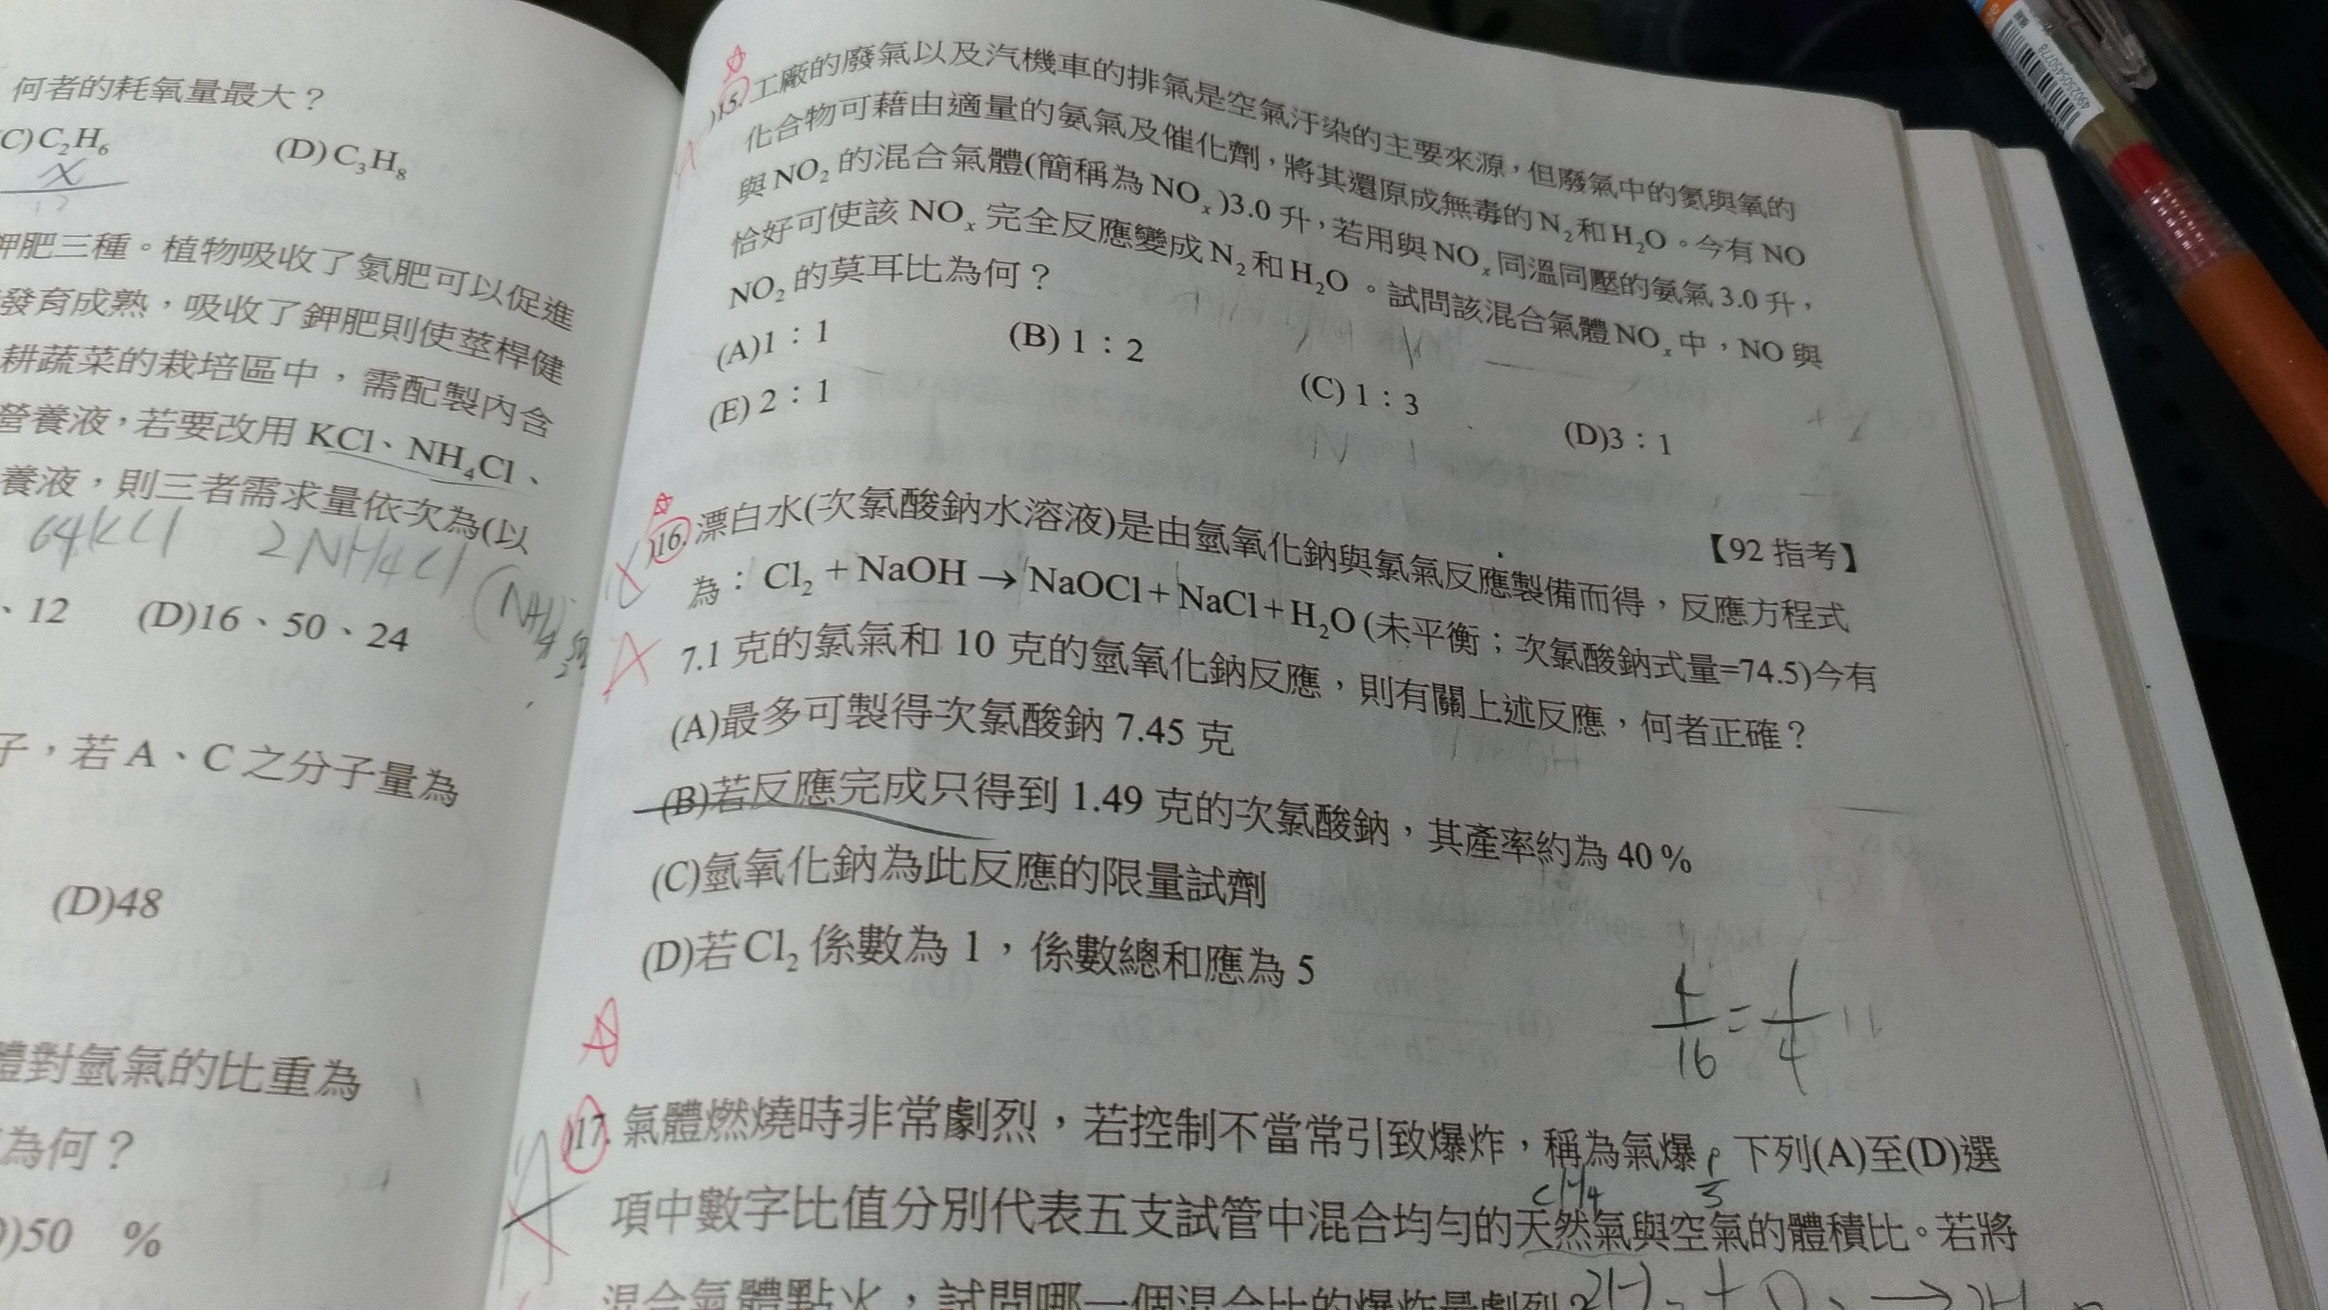 何者的耗氧量最大？
(C)C₂H₆
(D)C₃H₈
鉀肥三種。植物吸收了氮肥可以促進
發育成熟，吸收了鉀肥則使莖桿健
耕蔬菜的栽培區中，需配製內含
營養液，若要改用KCl、NH₄Cl、
養液，則三者需求量依次為(以
64KCl 2NH4Cl (NH4)2
、12 (D)16、50、24
子，若A、C之分子量為
(D)48
體對氫氣的比重為
為何？
)50 %
15. 工廠的廢氣以及汽機車的排氣是空氣汙染的主要來源，但廢氣中的氮與氧的
化合物可藉由適量的氨氣及催化劑，將其還原成無毒的N₂和H₂O。今有NO
與NO₂的混合氣體(簡稱為NOₓ)3.0升，若用與NOₓ同溫同壓的氨氣3.0升，
恰好可使該NOₓ完全反應變成N₂和H₂O。試問該混合氣體NOₓ中，NO與
NO₂的莫耳比為何？
(A)1：1 (B)1：2 (C)1：3 (D)3：1
(E)2：1
【92指考】
16. 漂白水(次氯酸鈉水溶液)是由氫氧化鈉與氯氣反應製備而得，反應方程式
為：Cl₂+NaOH→NaOCl+NaCl+H₂O(未平衡；次氯酸鈉式量=74.5)今有
7.1克的氯氣和10克的氫氧化鈉反應，則有關上述反應，何者正確？
A
(A)最多可製得次氯酸鈉7.45克
(B)若反應完成只得到1.49克的次氯酸鈉，其產率約為40%
(C)氫氧化鈉為此反應的限量試劑
(D)若Cl₂係數為1，係數總和應為5
1/16=1/4
17. 氣體燃燒時非常劇烈，若控制不當常引致爆炸，稱為氣爆。下列(A)至(D)選
CH4
項中數字比值分別代表五支試管中混合均勻的天然氣與空氣的體積比。若將
混合氣體點火，試問哪一個混合比的爆炸最劇烈？